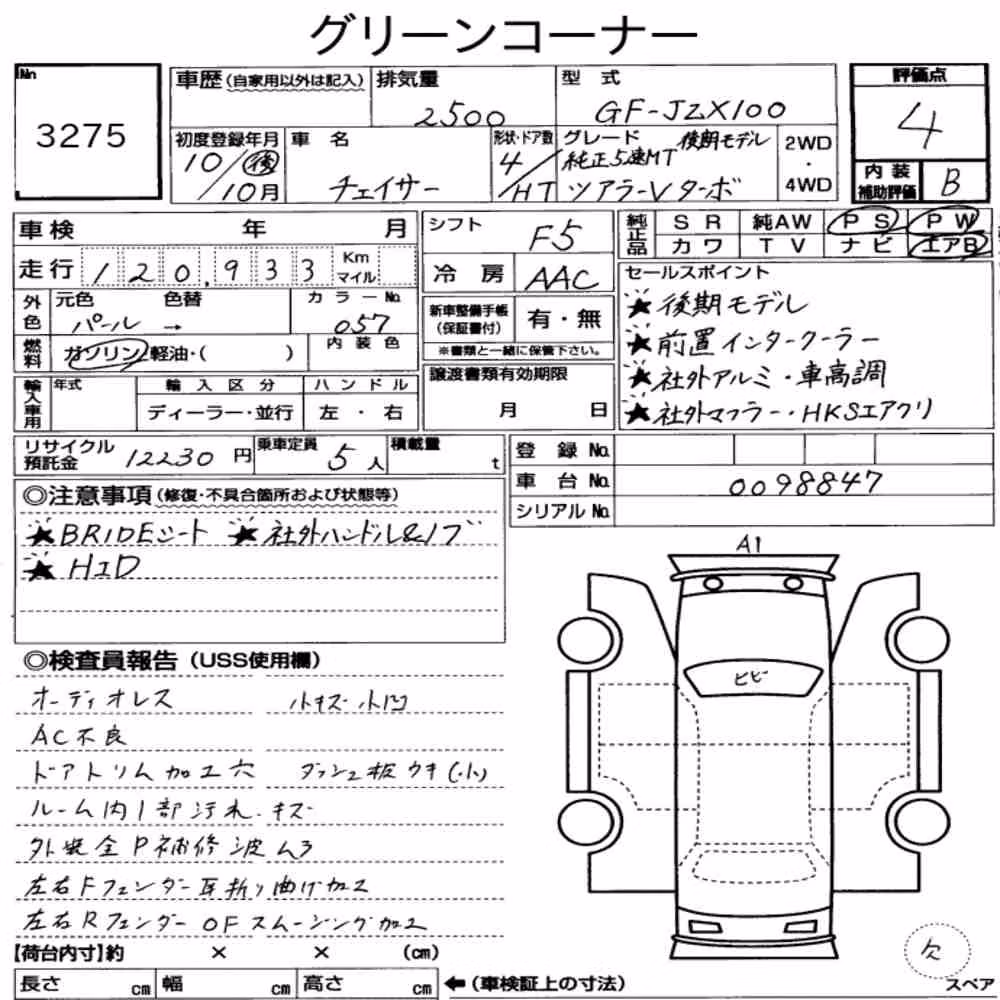 グリーンコーナー
No
3275
車歴(自家用以外は記入)
排気量
2500
型 式
GF-JZX100
評価点
4
初度登録年月
10/後
/10月
車 名
チェイサー
形状・ドア数
4/HT
グレード 後期モデル
純正5速MT
ツアラーV ターボ
2WD
・
4WD
内 装
補助評価
B
車検 年 月
シフト
F5
純正品
SR 純AW PS PW
カワ TV ナビ エアB
走行 120,933 Km
マイル
冷 房
AAC
外色
元色 色替
パール →
カラーNo.
057
新車整備手帳
(保証書付)
有・無
※書類と一緒に保管下さい。
燃料
ガソリン・軽油・( )
内 装 色
セールスポイント
★後期モデル
★前置インタークーラー
★社外アルミ・車高調
★社外マフラー・HKSエアクリ
輸入車用
年式
輸 入 区 分
ディーラー・並行
ハ ン ド ル
左 ・ 右
譲渡書類有効期限
月 日
リサイクル
預託金
12230 円
乗車定員
5 人
積載量
t
登 録 No.
車 台 No.
0098847
シリアル No.
◎注意事項(修復・不具合箇所および状態等)
★BRIDEシート ★社外ハンドル&ノブ
★HID
A1
ヒビ
◎検査員報告(USS使用欄)
オーディオレス 小キズ小凹
AC不良
ドアトリム加工穴 ダッシュ板ウキ(小)
ルーム内1部汚れ.キズ
外装全P補修波ムラ
左右Fフェンダー耳折り曲げ加工
左右RフェンダーOFスムージング加工
【荷台内寸】約 × × (cm)
長さ cm 幅 cm 高さ cm ←(車検証上の寸法)
欠
スペア